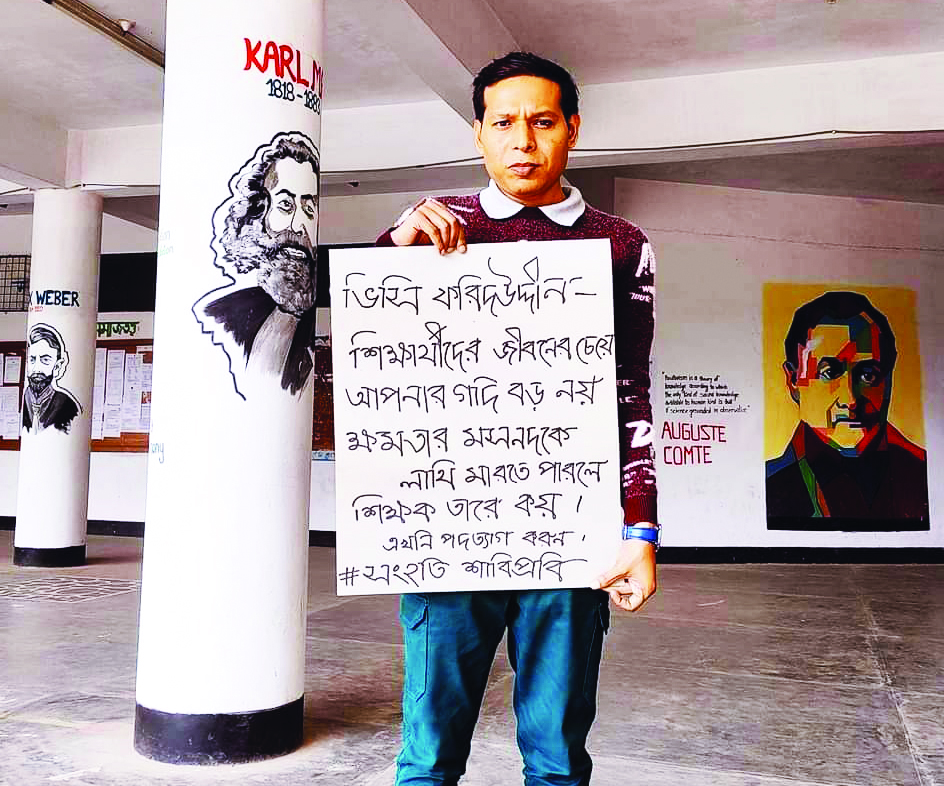 KARL M
1818-188
WEBER
সমাজতত্ত্ব
ভিসি ফরিদউদ্দীন -
শিক্ষার্থীদের জীবনের চেয়ে
আপনার গদি বড় নয়
ক্ষমতার মসনদকে
লাথি মারতে পারলে
শিক্ষক তারে কয়।
এখনি পদত্যাগ করুন।
#সংহতি শাবিপ্রবি
"Positivism is a theory of
knowledge according to which
the only kind of sound knowledge
available to human kind is that
if science grounded in observation"
AUGUSTE
COMTE